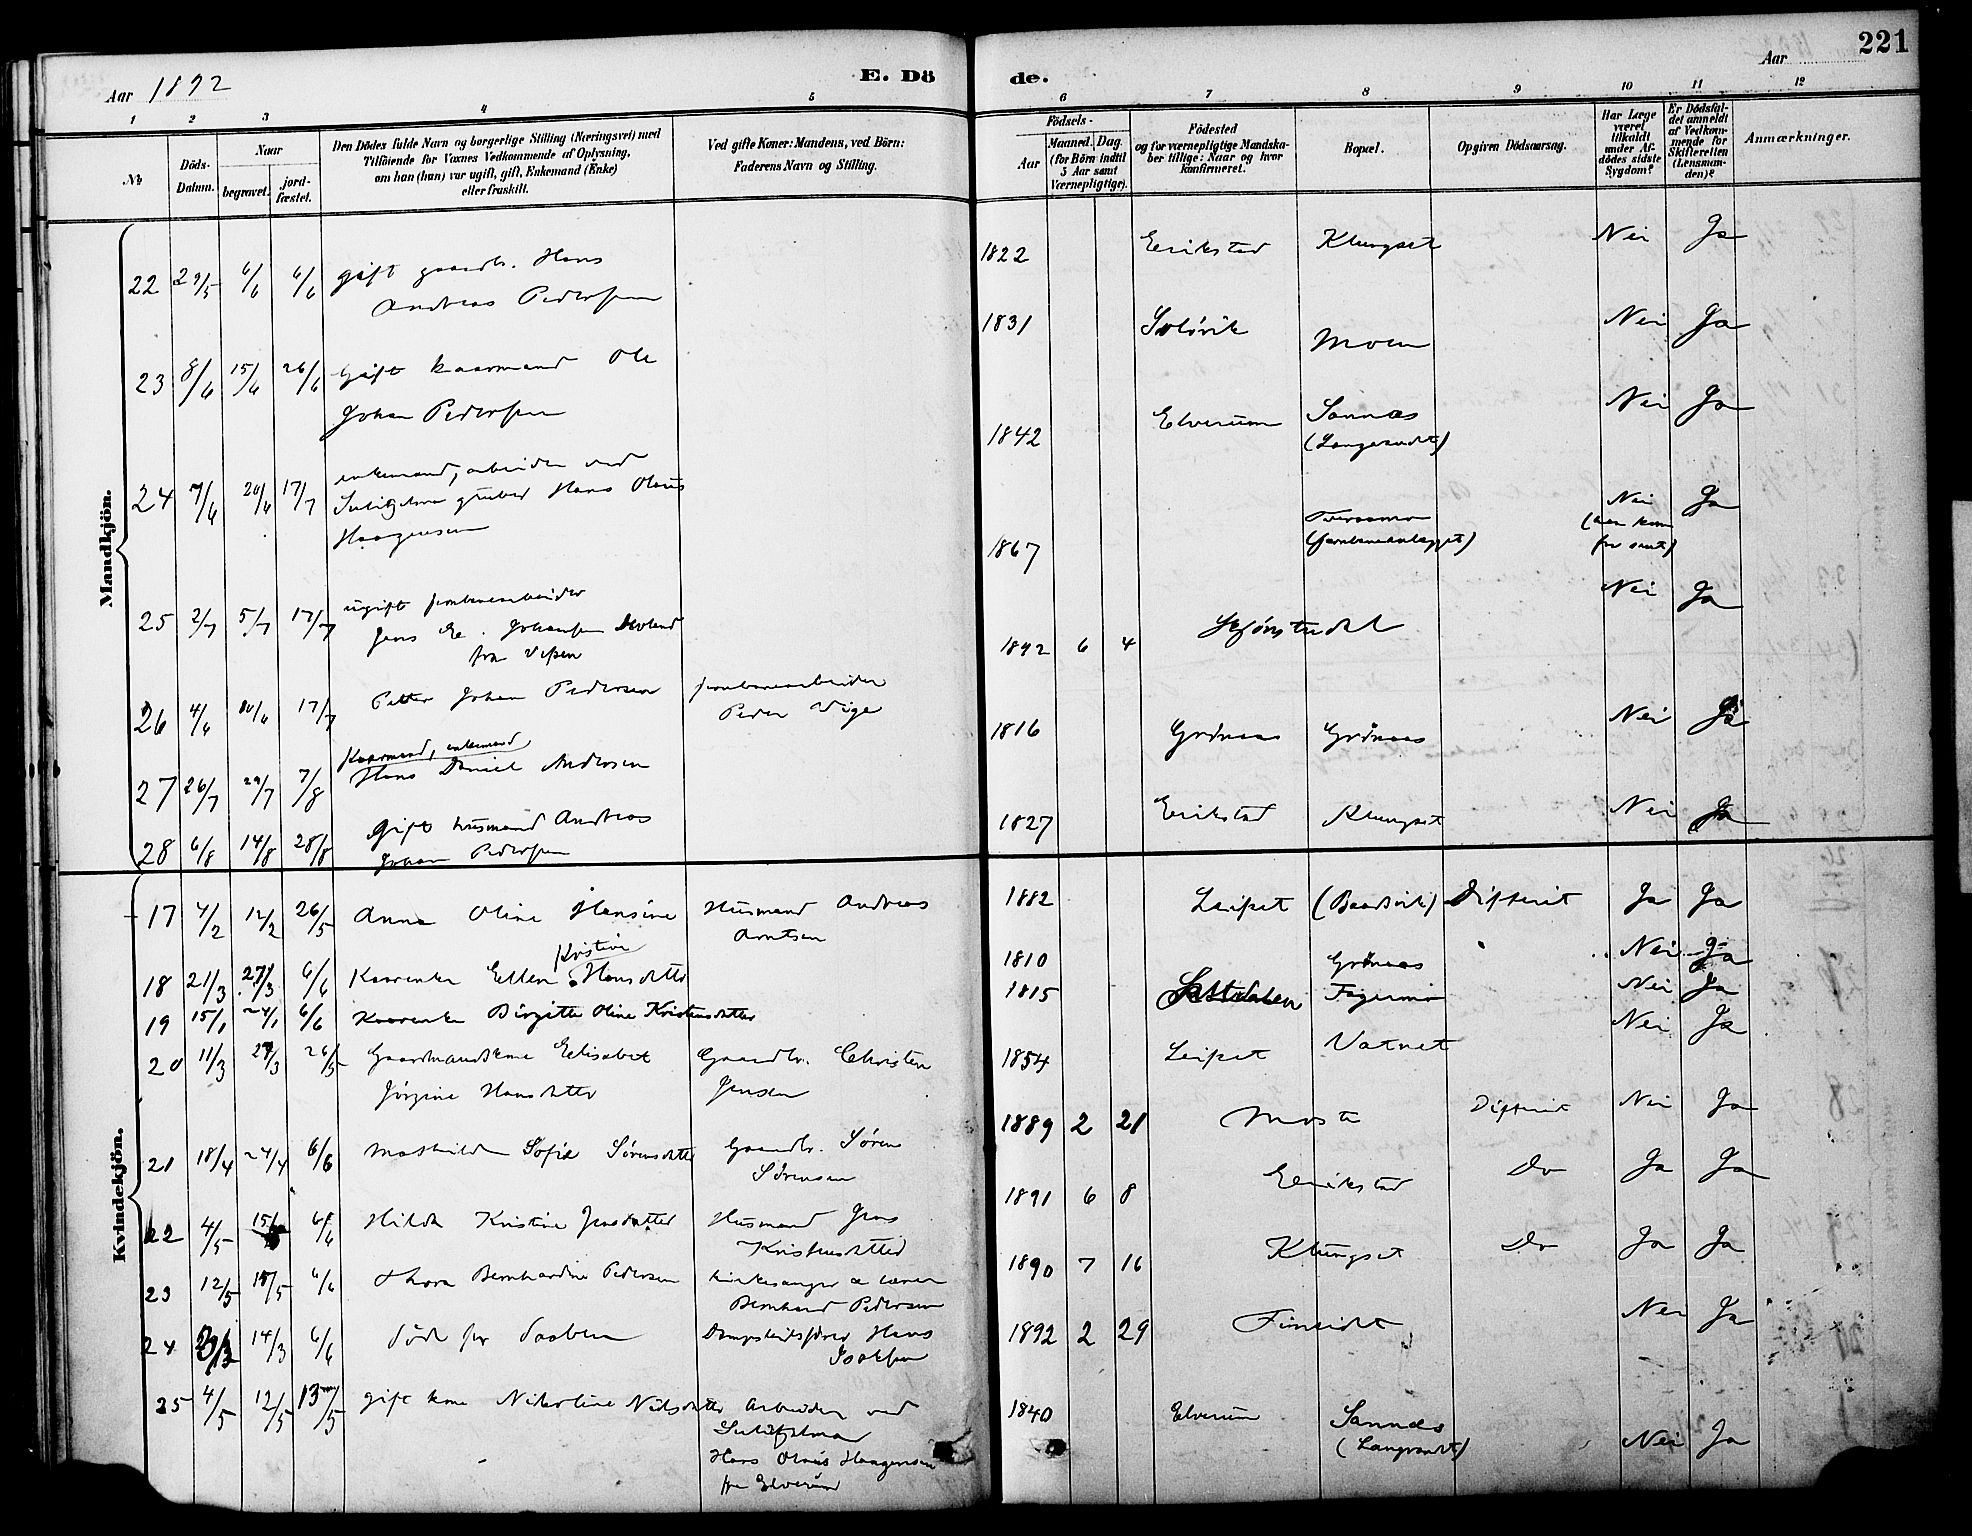 221
Aar 1892
E. Dö de.
Aar
1 2 3 4 5 6 7 8 9 10 11 12
№
Döds-Datum.
Naar
begravet.
jord-fæstet.
Den Dödes fulde Navn og borgerlige Stilling (Næringsvei) med
Tilföiende for Voxnes Vedkommende af Oplysning,
om han (hun) var ugift, gift, Enkemand (Enke)
eller fraskilt.
Ved gifte Koner: Mandens, ved Börn:
Faderens Navn og Stilling.
Födsels-
Aar
Maaned. Dag.
(for Börn indtil
5 Aar samt
Værnepligtige).
Födested
og for værnepligtige Mandska-
ber tillige: Naar og hvor
konfirmeret.
Bopæl.
Opgiven Dödsaarsag.
Har Læge
været
tilkaldt
under Af-
dödes sidste
Sygdom?
Er Dödsfal-
det anmeldt
af Vedkom-
mende for
Skifteretten
(Lensman-
den)?
Anmærkninger.
Mandkjön.
22 29/5 6/6 6/6 gift gaardbr. Hans
Andreas Pedersen
1822 Erikstad Klungset Nei Ja
23 8/6 15/6 26/6 Gift kaarmand Ole
Johan Pedersen
1831 Moen Nei Ja
24 7/6 20/6 17/7 enkemand, arbeider ved
Sulitelma gruber Hans Olaus
Haagensen
1842 Elverum Sannæs
(Langvandt) Nei Ja
25 2/7 5/7 17/7 ugift jernbanearbeider
Jens Johansen
fra Vefsen
1867
(jernbaneanlægget) Nei
(men kom
for sent) Ja
26 4/6 17/7 Petter Johan Pedersen jernbanearbeider
Peder
1892 6 4 Skjönstudal Nei Ja
27 26/7 29/7 7/8 Kaarmand, enkemand
Hans Daniel Andersen
1816 Grönaas Grönaas Nei Ja
28 6/8 14/8 28/8 Gift husmand Andreas
Johan Pedersen
1827 Erikstad Klungset Nei Ja
Kvindekjön.
17 4/2 12/2 26/5 Anna Oline Hansine Husmand Andreas
Arntsen
1882 Leifset (Baadsvik) Difterit Ja Ja
18 21/3 27/3 6/6 Kaarenke Ellen Kristine Hansdatter
1810 Grönaas Nei Ja
19 15/1 24/1 6/6 Kaarenke Birgitte Oline Kristensdatter
1815 Saltdalen Fagermo Nei Ja
20 11/3 27/3 26/5 Gaardmandskone Elisabet
Jörgine Hansdatter
Gaardbr. Christen
Jensen
1854 Leifset Vatnet Nei Ja
21 18/4 24/4 6/6 Mathilde Sofie Sörensdatter Gaardbr. Sören
Sörensen
1889 2 21 Moste Difterit Nei Ja
22 4/5 6/6 Hilda Kristine Jensdatter Husmand Jens
1891 6 8 Erikstad Do Ja Ja
23 12/5 15/5 6/6 Thora Bernhardine Pedersen kirkesanger & lærer
Bernhard Pedersen
1890 7 16 Klungset Do Ja Ja
24 14/3 6/6 död før daaben Dampskibsförer Hans
Isaksen
1892 2 29 Finneidet Nei Ja
25 4/5 12/5 13/5 gift kone Nikoline Nilsdatter Arbeider ved
Sulitelma
Hans Olaus Haagensen
fra Elverum
1840 Elverum Sannæs
(Langvandt) Nei Ja